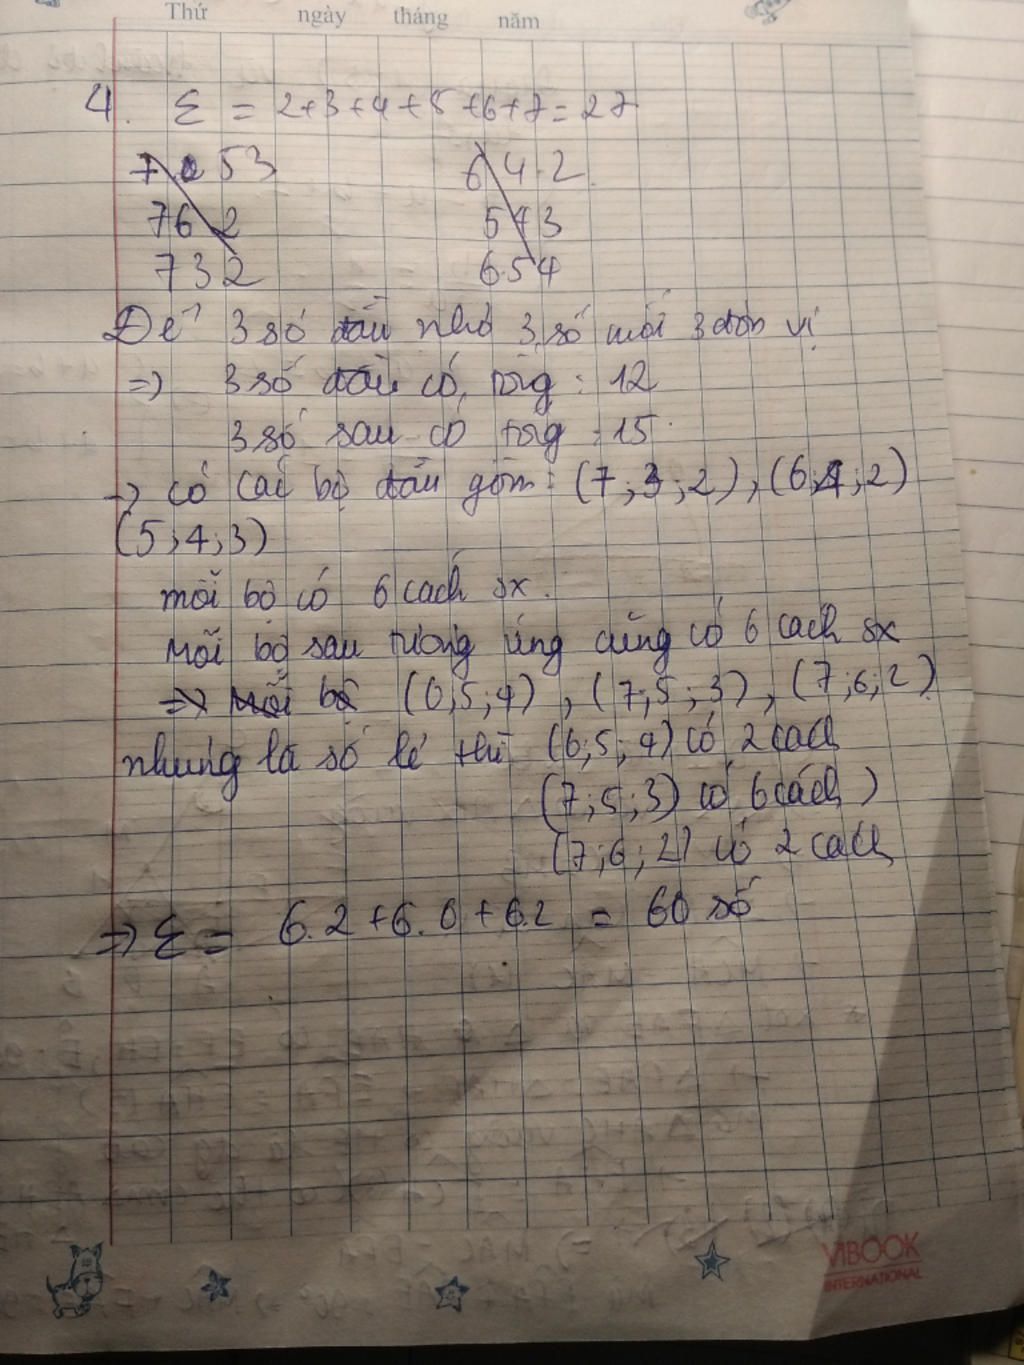 Thứ ngày tháng năm
4. Σ = 2+3+4+5+6+7 = 27
7 6 53 6 4 2
76 2 5 4 3
7 3 2 6 5 4
Để 3 số đầu nhỏ 3 số cuối 3 đơn vị
=) 3 số đầu có tổng : 12
3 số sau có tổng : 15
→ có các bộ đầu gồm : (7; 3; 2), (6; 4; 2)
(5; 4; 3)
mỗi bộ có 6 cách sx.
Mỗi bộ sau tương ứng cũng có 6 cách sx
=> Mỗi bộ (6; 5; 4), (7; 5; 3), (7; 6; 2)
nhưng là số lẻ thì (6; 5; 4) có 2 cách
(7; 5; 3) có 6 cách)
(7; 6; 2) có 2 cách
=> Σ = 6.2 + 6.6 + 6.2 = 60 số
VIBOOK
INTERNATIONAL